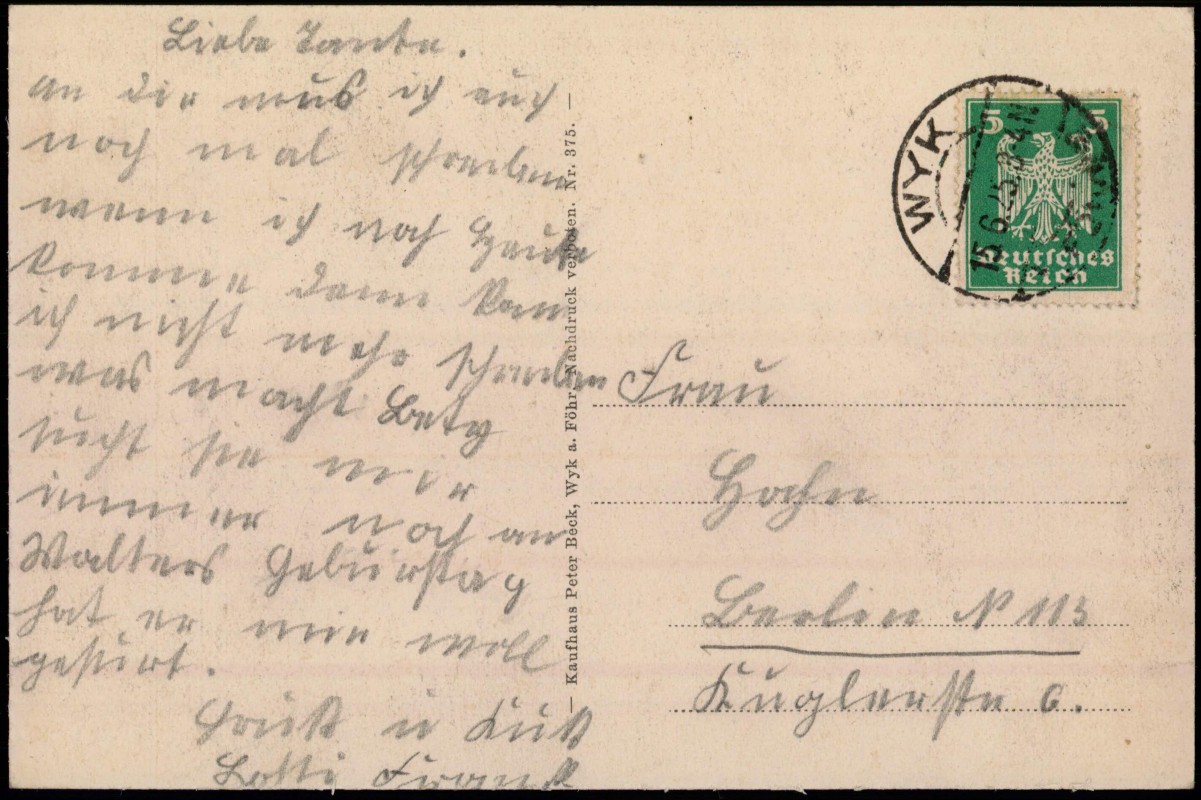 Liebe Tante.
an dir mus ich auch
noch mal schreiben
wenn ich nach Hause
komme dann kan
ich nicht mehr schreiben
was macht Bety
sucht sie mir
immer noch an
Walters Geburstag
hat er mir woll
gefeiert.
Gruß u Kuß
Lotti Frank
— Kaufhaus Peter Beck, Wyk a. Föhr. Nachdruck verboten. Nr. 375. —
WYK
15.6.25.3-4N
5 5
Deutsches
Reich
Frau
Hochn
Berlin N 113
Kuglerstr 6.